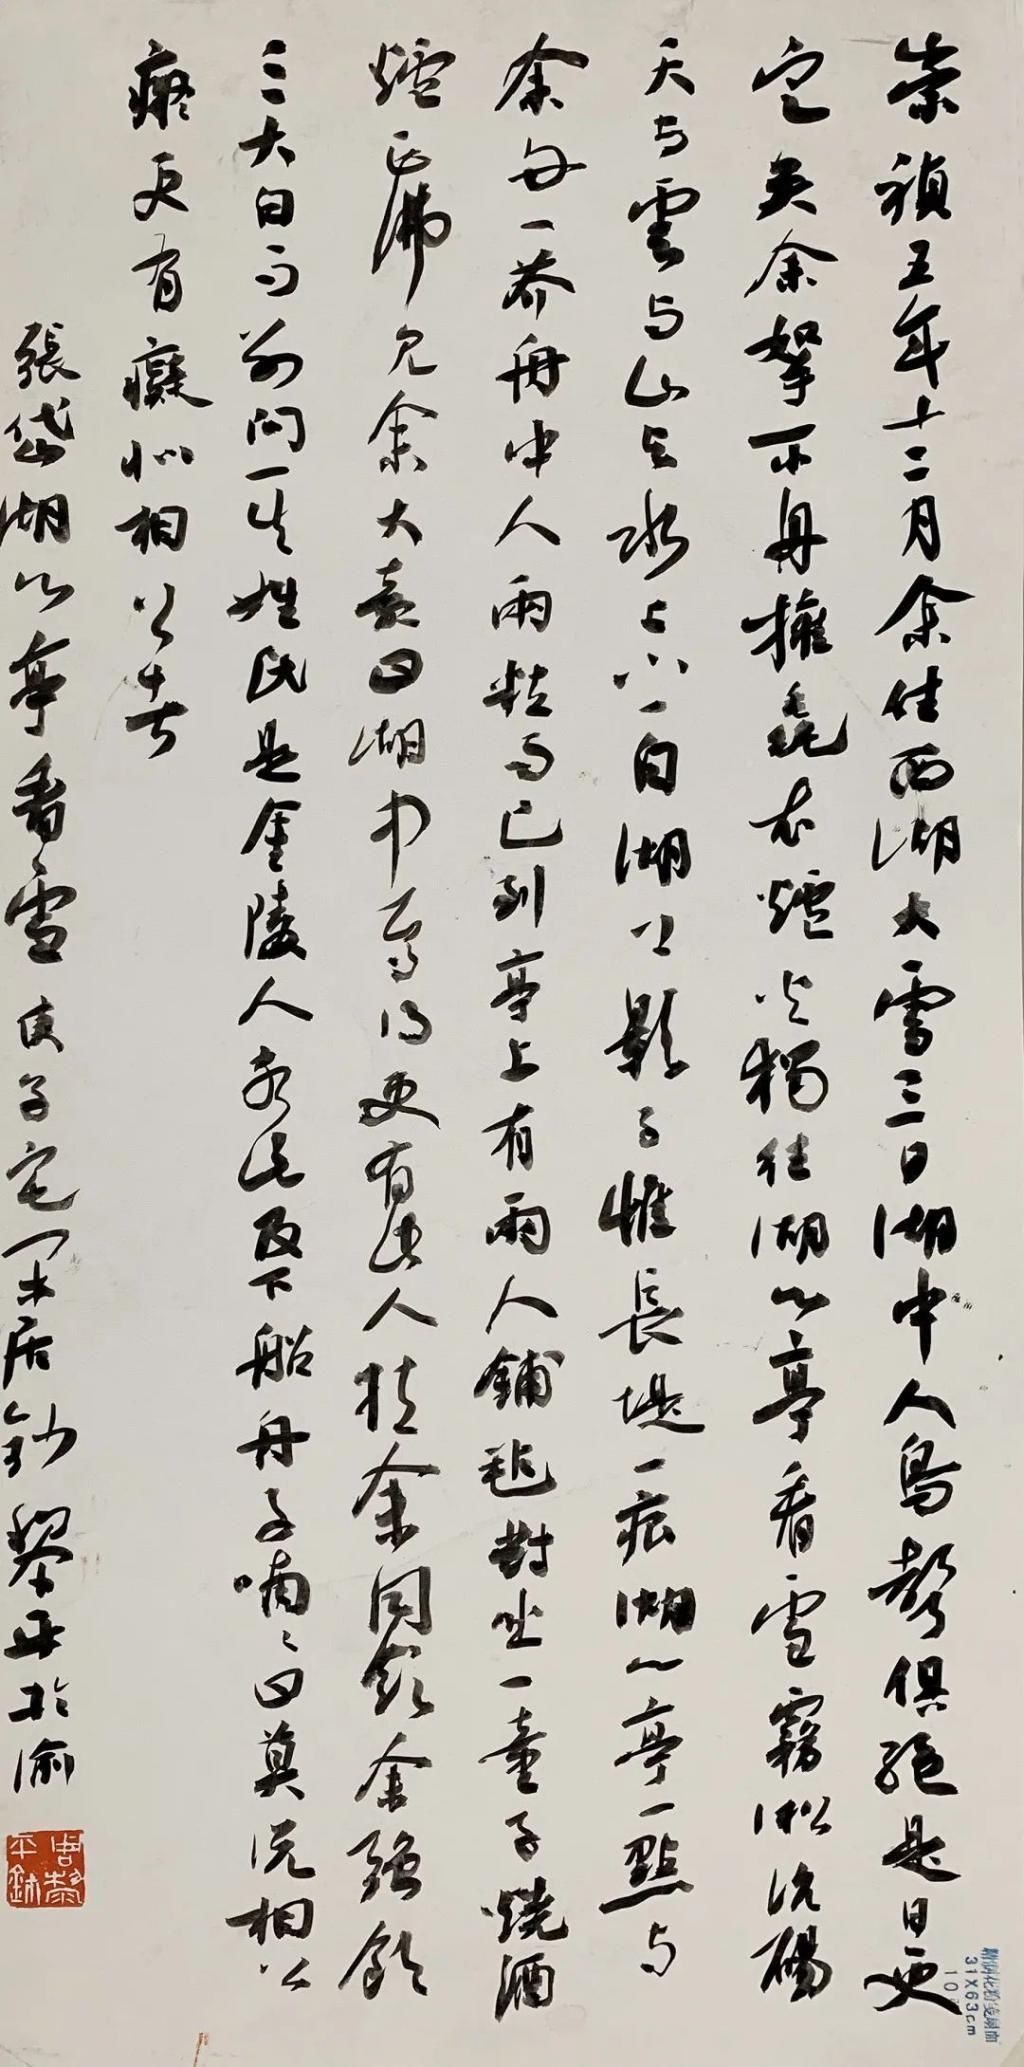 崇禎五年十二月余住西湖大雪三日湖中人鳥聲俱絕是日更
定矣余拏一小舟擁毳衣爐火獨往湖心亭看雪霧凇沆碭
天與雲與山與水上下一白湖上影子惟長堤一痕湖心亭一點與
余舟一芥舟中人兩粒而已到亭上有兩人鋪氈對坐一童子燒酒
爐正沸見余大喜曰湖中焉得更有此人拉余同飲余強飲
三大白而別問其姓氏是金陵人客此及下船舟子喃喃曰莫說相公
癡更有癡似相公者
張岱湖心亭看雪 庚子宅家居鈔 黎平於渝
周黎平鉨
31X63cm
10